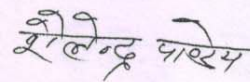 शैलेन्द्र पाण्डेय